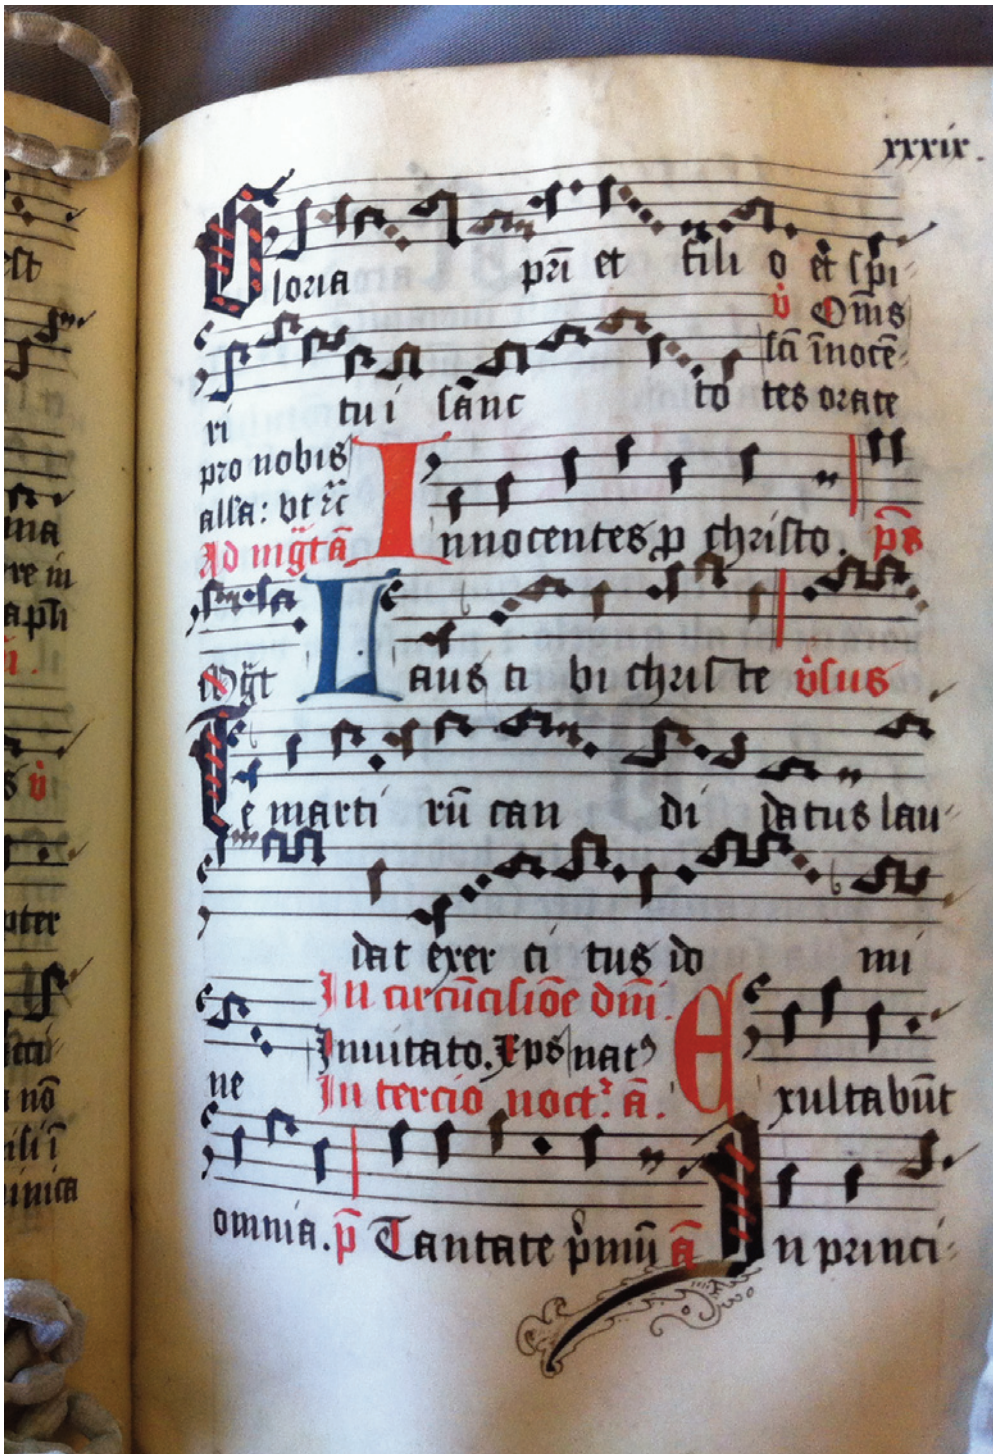 xxxix.
Gloria pr̄i et fili o et sp̄i
v̇ Om̄s
sc̄i īnocē
ri tu i sanc to tes orate
pro nobis
all'a: vt
Ad mḡtā Innocentes p christo. p̄s
Mḡt Laus ti bi chris te v̇sus
Te marti rū can di datus lau
dat exer ci tus do mi
In circūcisiōe dn̄i.
Inuitato. Xps nat⁹
ne In tercio noct. ā. Exultabūt
omnia. p̄ Cantate ṗmū ā In princi
est
ma
re in
apl̄i
v̇
nter
nō
īnica